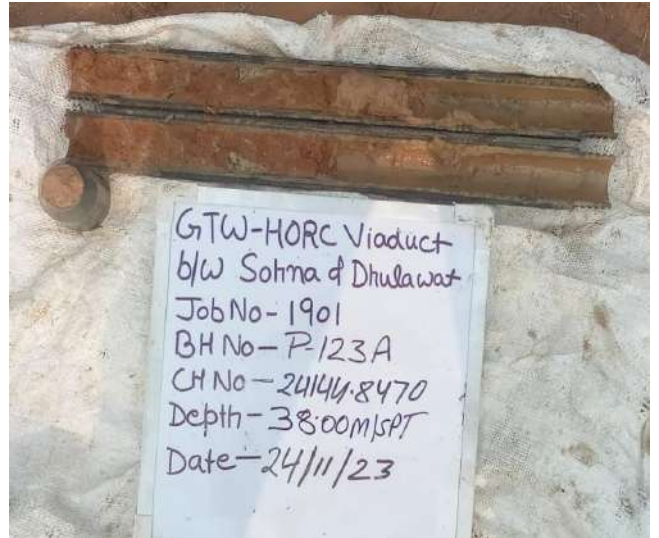 GTW-HORC Viaduct
b/w Sohna & Dhulawat
Job No- 1901
BH No- P-123A
CH No- 24144.8470
Depth- 38.00m/SPT
Date- 24/11/23